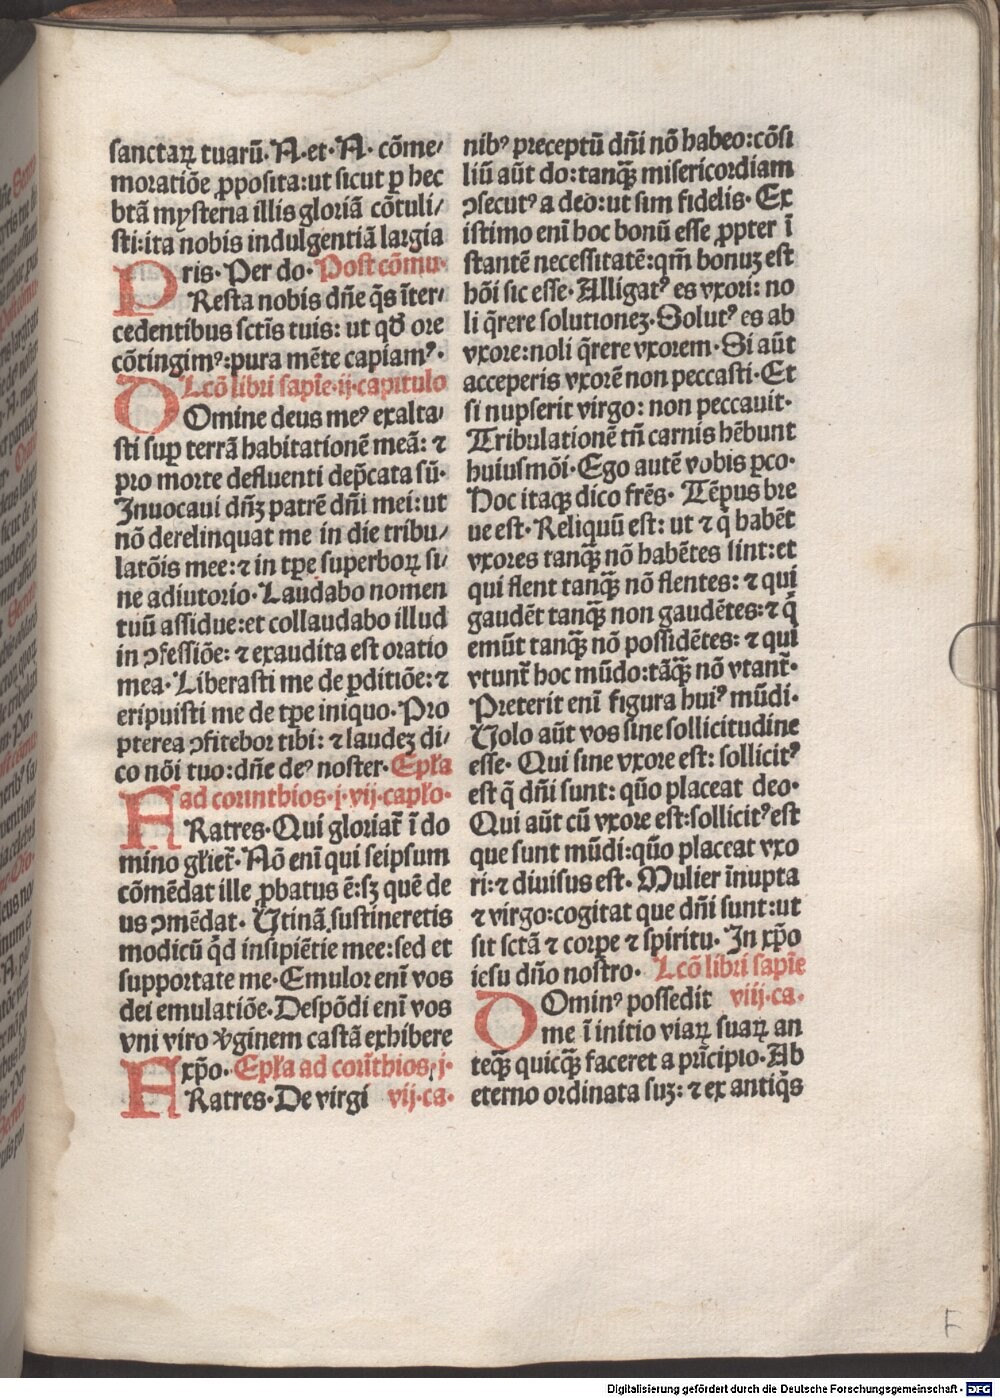 sanctaꝝ tuarū· N· et· N· cōme⸗
moratiōe ꝓposita: ut sicut ꝑ hec
btā mysteria illis gloriā cōtuli⸗
sti: ita nobis indulgentiā largia
ris· Per do· Post cōmu·
PResta nobis dn̄e q̄s īter⸗
cedentibus sct̄is tuis: ut qđ ore
cōtingimꝰ: pura mēte capiamꝰ·
Lcō libri sapīe· ij· capitulo
DOmine deus meꝰ exalta⸗
sti suꝑ terrā habitationē meā: ⁊
pro morte defluenti dep̄cata sū·
Inuocaui dn̄ꝫ patrē dn̄i mei: ut
nō derelinquat me in die tribu⸗
latōis mee: ⁊ in tꝑe superboꝝ si⸗
ne adiutorio· Laudabo nomen
tuū assidue: et collaudabo illud
in ꝯfessiōe: ⁊ exaudita est oratio
mea· Liberasti me de ꝑditiōe: ⁊
eripuisti me de tꝑe iniquo· Pro
pterea ꝯfitebor tibi: ⁊ laudeꝫ di⸗
co nōi tuo: dn̄e deꝰ noster· Epła
ad corinthios· j· vij· capło·
FRatres· Qui gloriat᷑ ī do
mino głiet᷑· Nō enī qui seipsum
cōmēdat ille ꝓbatus ē: sꝫ quē de
us ꝯmēdat· Utinā sustineretis
modicū qͥd insipiētie mee: sed et
supportate me· Emulor enī vos
dei emulatiōe· Despōdi enī vos
vni viro v̉ginem castā exhibere
xp̄o· Epła ad corīthios· j·
FRatres· De virgi vij· ca·
nibꝰ preceptū dn̄i nō habeo: cōsi
liū aūt do: tanqꝫ̄ misericordiam
ꝯsecutꝰ a deo: ut sim fidelis· Ex
istimo enī hoc bonū esse ꝓpter ī
stantē necessitatē: qm̄ bonuꝫ est
hōi sic esse· Alligatꝰ es vxori: no
li q̄rere solutioneꝫ· Solutꝰ es ab
vxore: noli q̄rere vxorem· Si aūt
acceperis vxorē non peccasti· Et
si nupserit virgo: non peccauit·
Tribulationē tn̄ carnis hēbunt
huiusmōi· Ego autē vobis ꝑco·
Hoc itaqꝫ dico frēs· Tēpus bre
ue est· Reliquū est: ut ⁊ qͥ habēt
vxores tanqꝫ̄ nō habētes sint: et
qui flent tanqꝫ̄ nō flentes: ⁊ qui
gaudēt tanqꝫ̄ non gaudētes: ⁊ qͥ
emūt tanqꝫ̄ nō possidētes: ⁊ qui
vtunt᷑ hoc mūdo: tāqꝫ̄ nō vtant᷑·
Preterit enī figura huiꝰ mūdi·
Volo aūt vos sine sollicitudine
esse· Qui sine vxore est: sollicitꝰ
est q̄ dn̄i sunt: quō placeat deo·
Qui aūt cū vxore est: sollicitꝰ est
que sunt mūdi: quō placeat vxo
ri: ⁊ diuisus est· Mulier īnupta
⁊ virgo: cogitat que dn̄i sunt: ut
sit sctā ⁊ corꝑe ⁊ spiritu· In xp̄o
iesu dn̄o nostro· Lcō libri sapīe
DOminꝰ possedit viij· ca·
me ī initio viaꝝ suaꝝ an
teqꝫ̄ quicqꝫ̄ faceret a prīcipio· Ab
eterno ordinata suꝫ: ⁊ ex antiqͥs
F
Digitalisierung gefördert durch die Deutsche Forschungsgemeinschaft - DFG